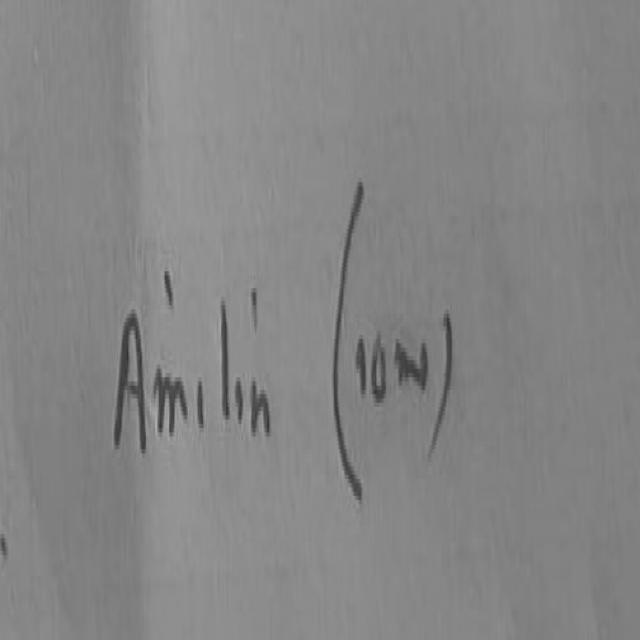 Amilin (10N)